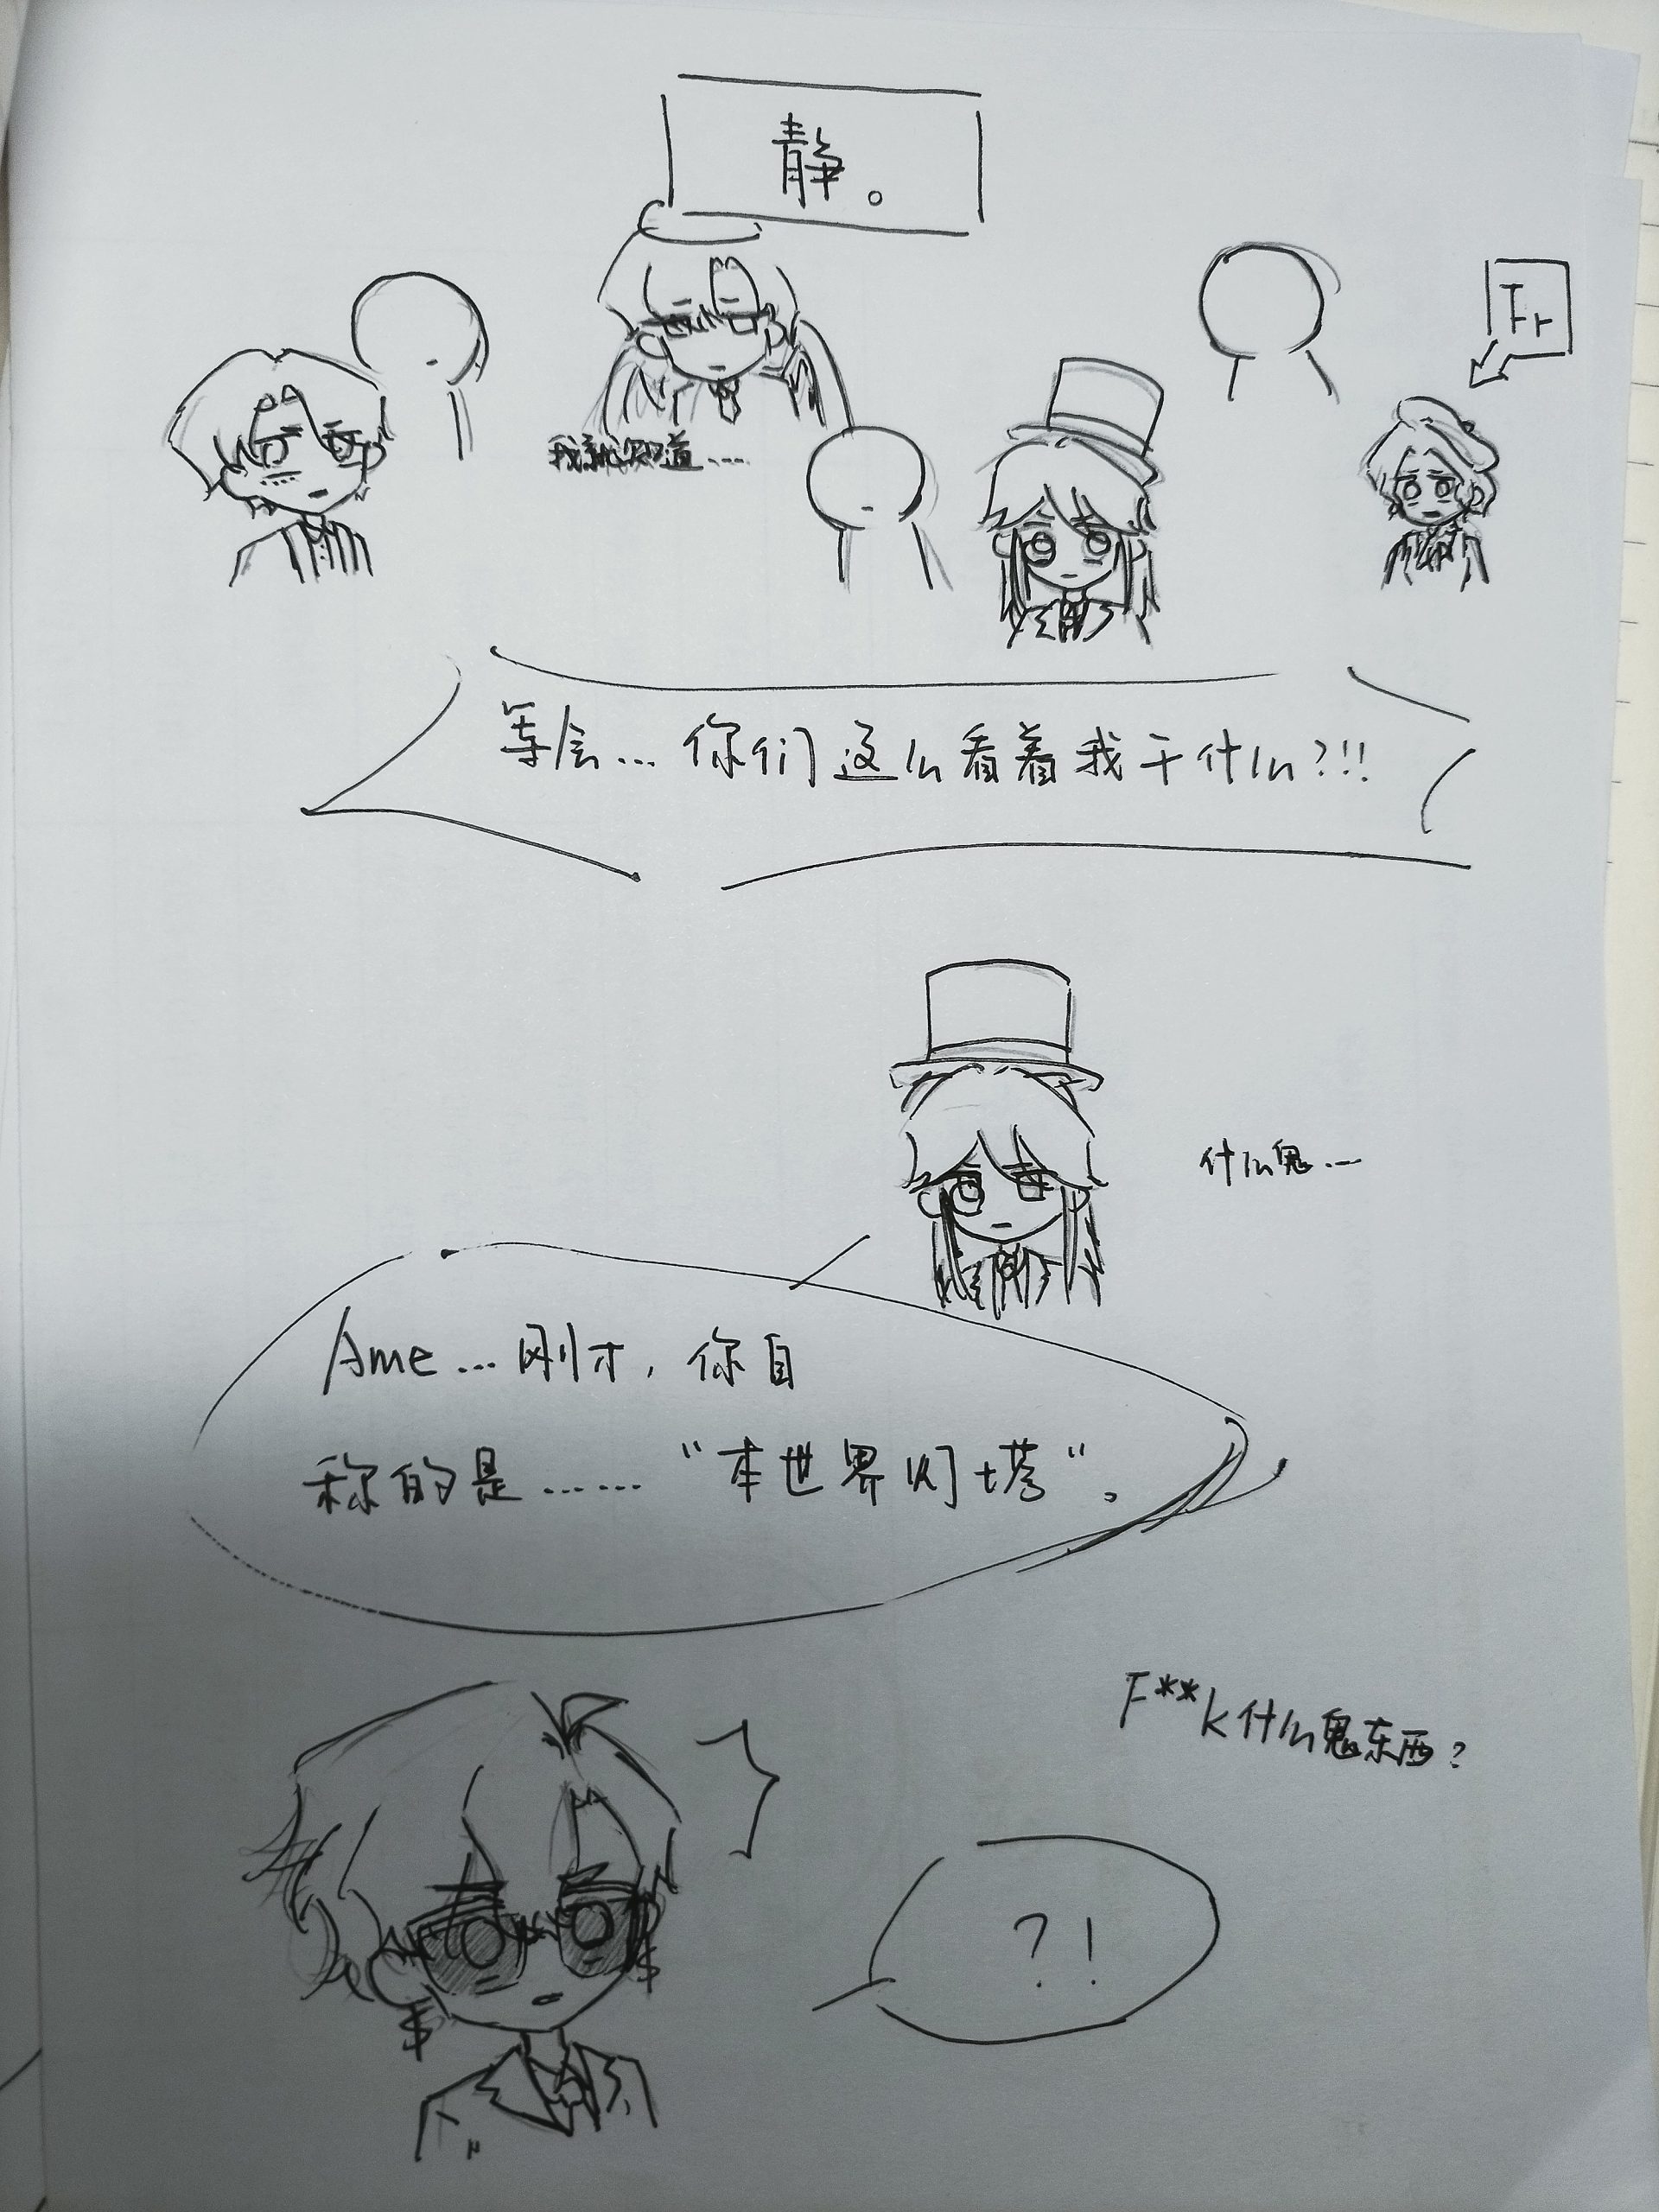 静。
Fr
我就知道...
等会...你们这么看着我干什么?!!
什么鬼...
Ame...刚才,你自
称的是......“本世界灯塔”。
F**k什么鬼东西?
?!